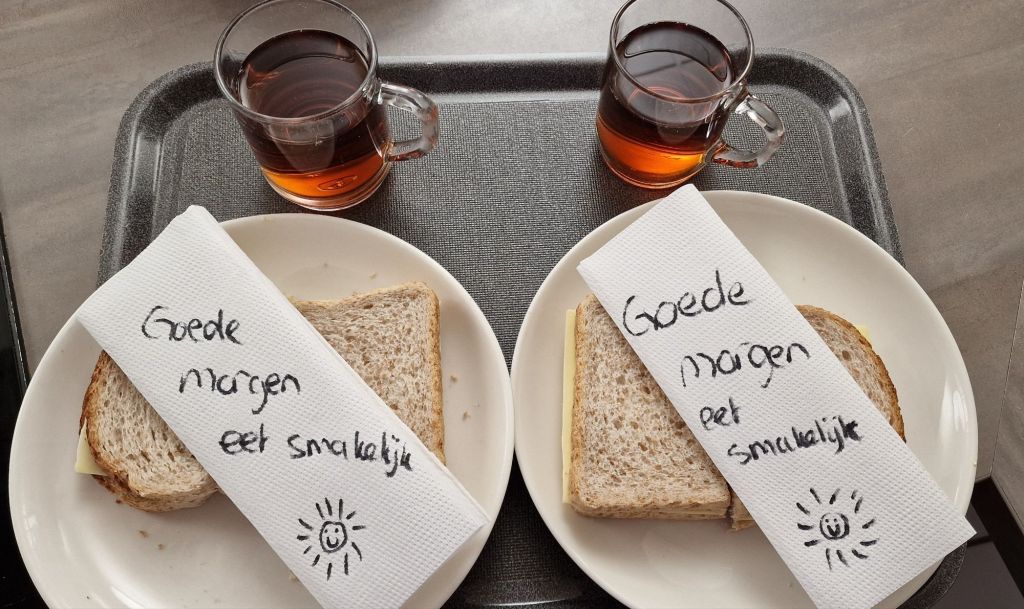 Goede
morgen
eet smakelijk
Goede
morgen
eet
smakelijk